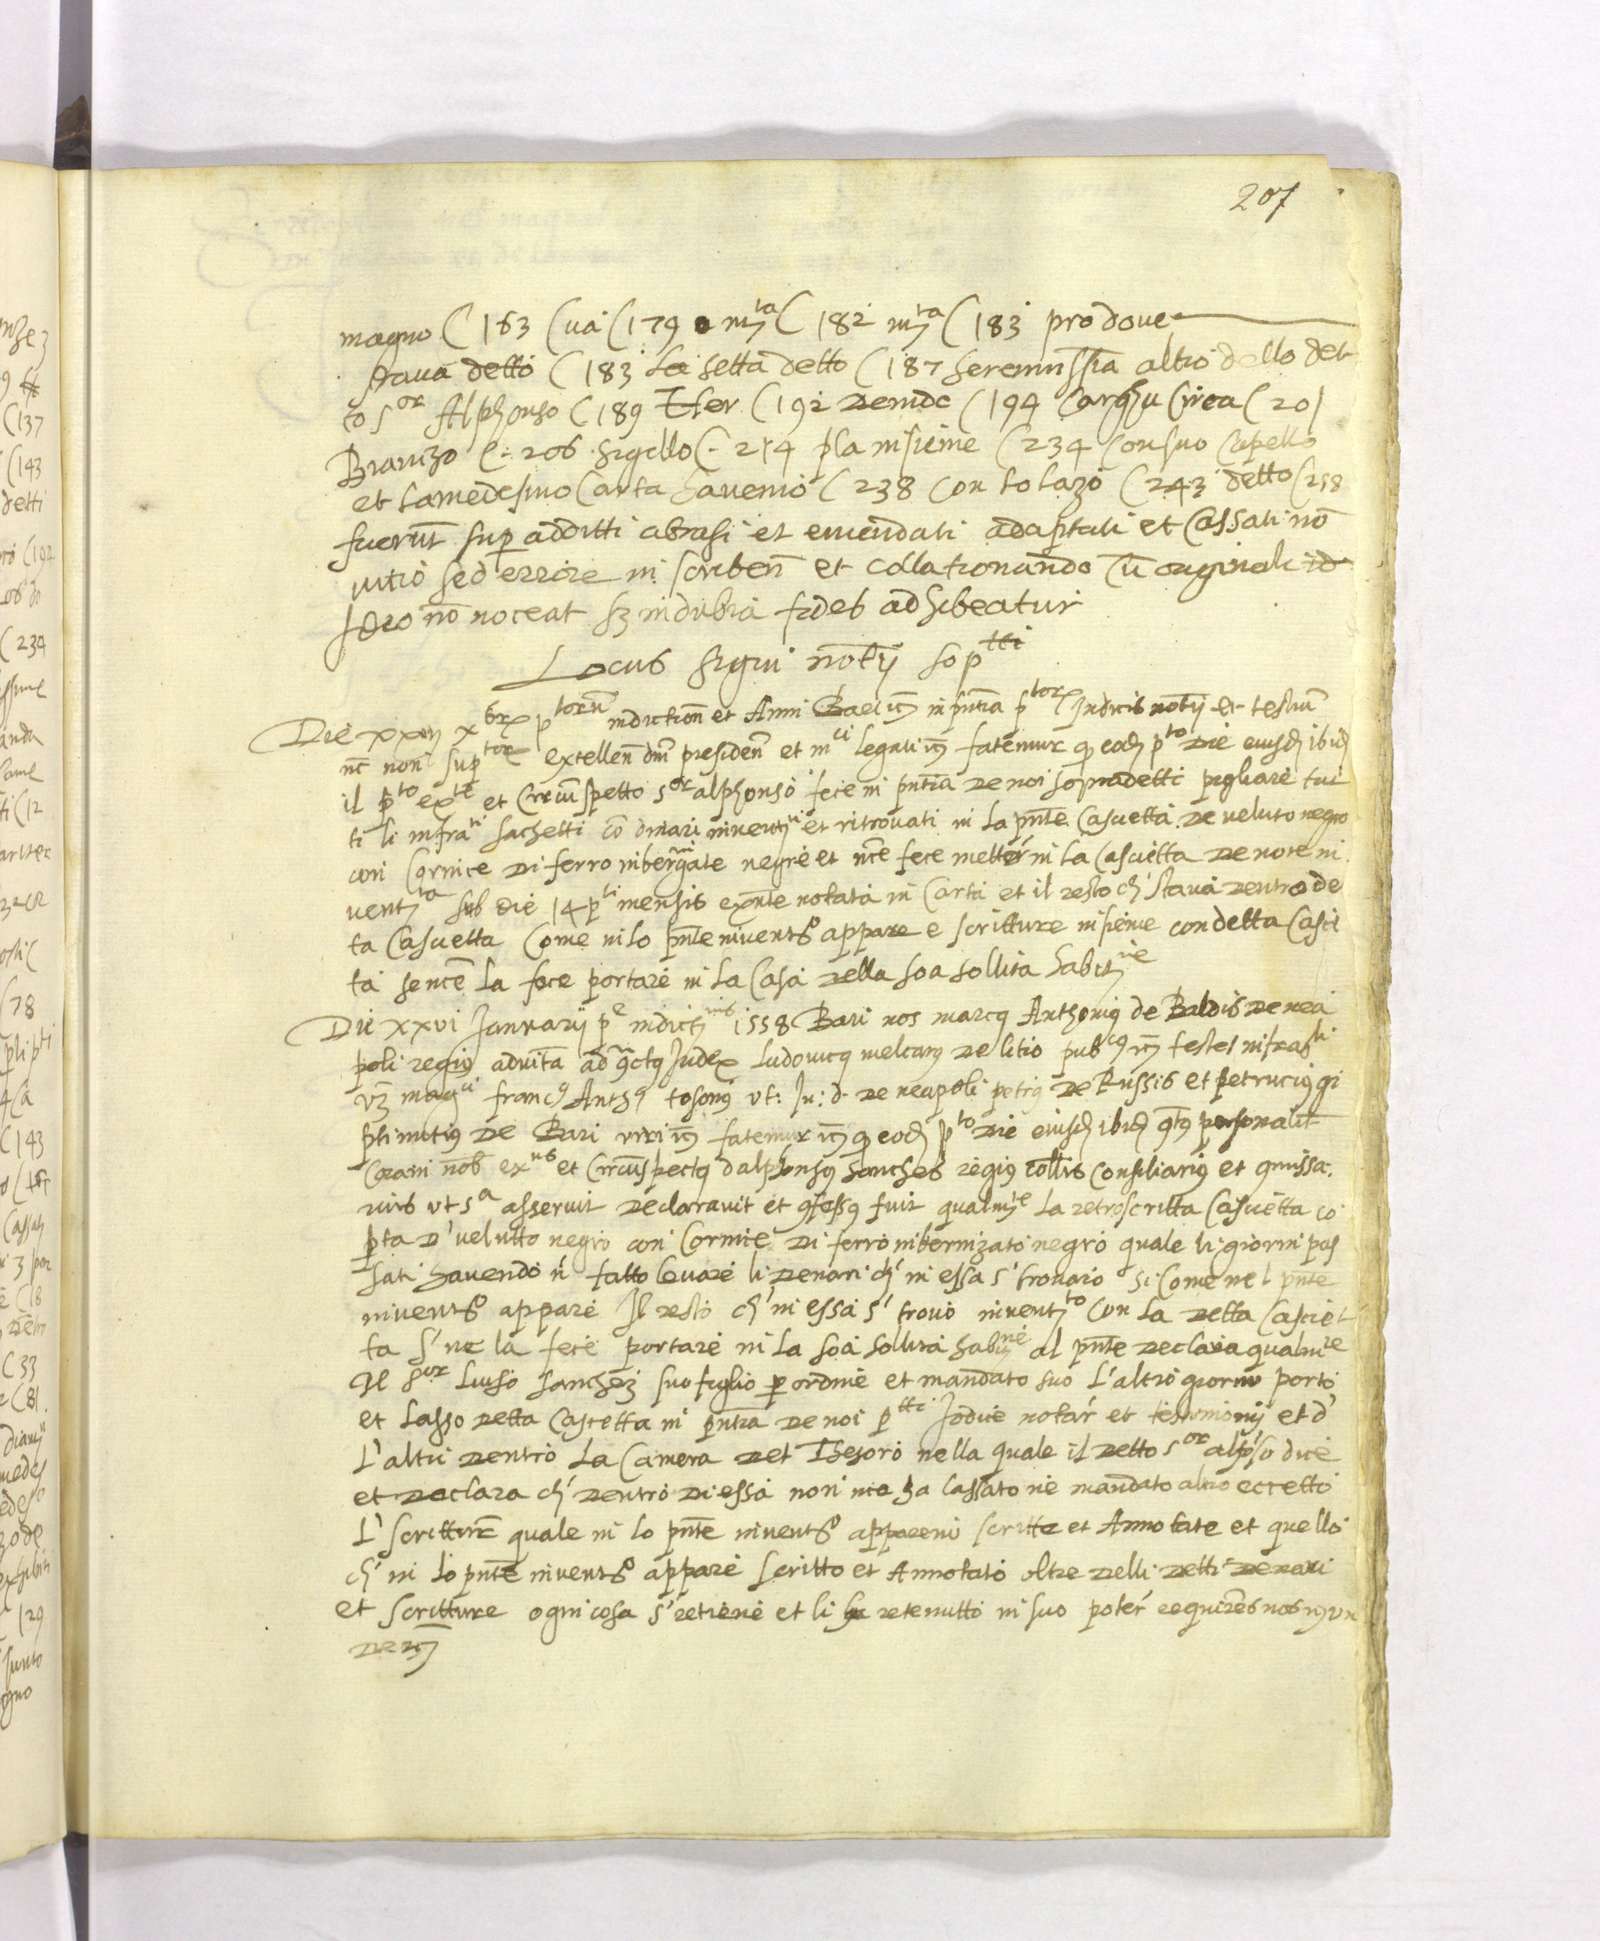 207
magno ( 163 ( va ( 179 mta ( 182 mta ( 183 pro dove
stava detto ( 183 la setta detto ( 187 serenissia altro dello det
to sor Alphonso ( 189 Her ( 192 ( 194 Circa ( 201
( 206 sigillo ( 214 insieme ( 234 Con suo Capello
et la medesmo Carta havemo ( 238 con lo lazo ( 243 detto ( 258
fuerut sup additti abrasi et emendati adaptati et Cassati no
vitio sed errore in scriben et collationando cu originali id
Ideo no noceat sz indubia fides adhibeatur
Locus signi notij sop tti
Die xxij xbrx ptoru indiction et Anni Bari in pntia ptorx Judicis notij et testiu
nc non suptor extellen dni presiden et mci legati fatemur q eod pto die eiusd ibid
il pto exte et Circuspetto sor alphonso fece in pntia de noi sopradetti pigliare tut
ti li infrati sachetti co dinari inventti et ritrovati in la pnte Cascetta de veluto negro
con Cornice di ferro negre et nce fece metter in la Cascietta de note in
ventta sub die 14 pti mensis exnte notata in Carta et il resto ch' stava dentro de
ta Cascetta Come in lo pnte inventro appare e scritture insieme con detta Casci
ta se nce la fece portare in la Casa della soa sollita habitne
Die xxvi Januarij pe indictnis 1558 Bari nos marcq Anthoniq de Baldis de nea
poli regiq ad vita ad qctq Judex ludovicq melcarq de litio pubcq testes infrasti
vz magci francq Anthq tosonq vt: Ju: d. de neapoli petrq de Russis et petruciq gi
ptimutiq de Bari viri fatemur q eod pto die eiusd ibid personalit
Coram nob exns et Circuspectq d alphonsq sanches regiq collis Consiliariq et
rius ut sa asseruit declaravit et qfessq fuit qualmte la retroscritta Cascietta co
pta d' velutto negro con Cornice di ferro inbernizato negro quale li giorni pas
sati havendo n' fatto levare li denari ch' in essa s' trovaro si come nel pnte
inventro appare Il resto ch' in essa s' trovo inventto con la detta Casciet
ta s' ne la fece portare in la soa sollita habne al pnte declara qualmte
Il sor luiso sanchez suo figlio p ordine et mandato suo l'altro giorno porto
et lasso detta Cascetta in pntia de noi ptti Jodice notar et testimonij et d'
l'altri dentro la Camera del Thesoro nella quale il detto sor alpso dice
et declara ch' dentro di essa non nce ha lassato ne mandato altro eccetto
l' scritture quale in lo pnte inventro appareno scritte et Annotate et quello
ch' in lo pnte inventro appare scritto et Annotato oltre delli detti denari
et scritture ogni cosa s' retiene et li ha retenutto in suo poter requires nos